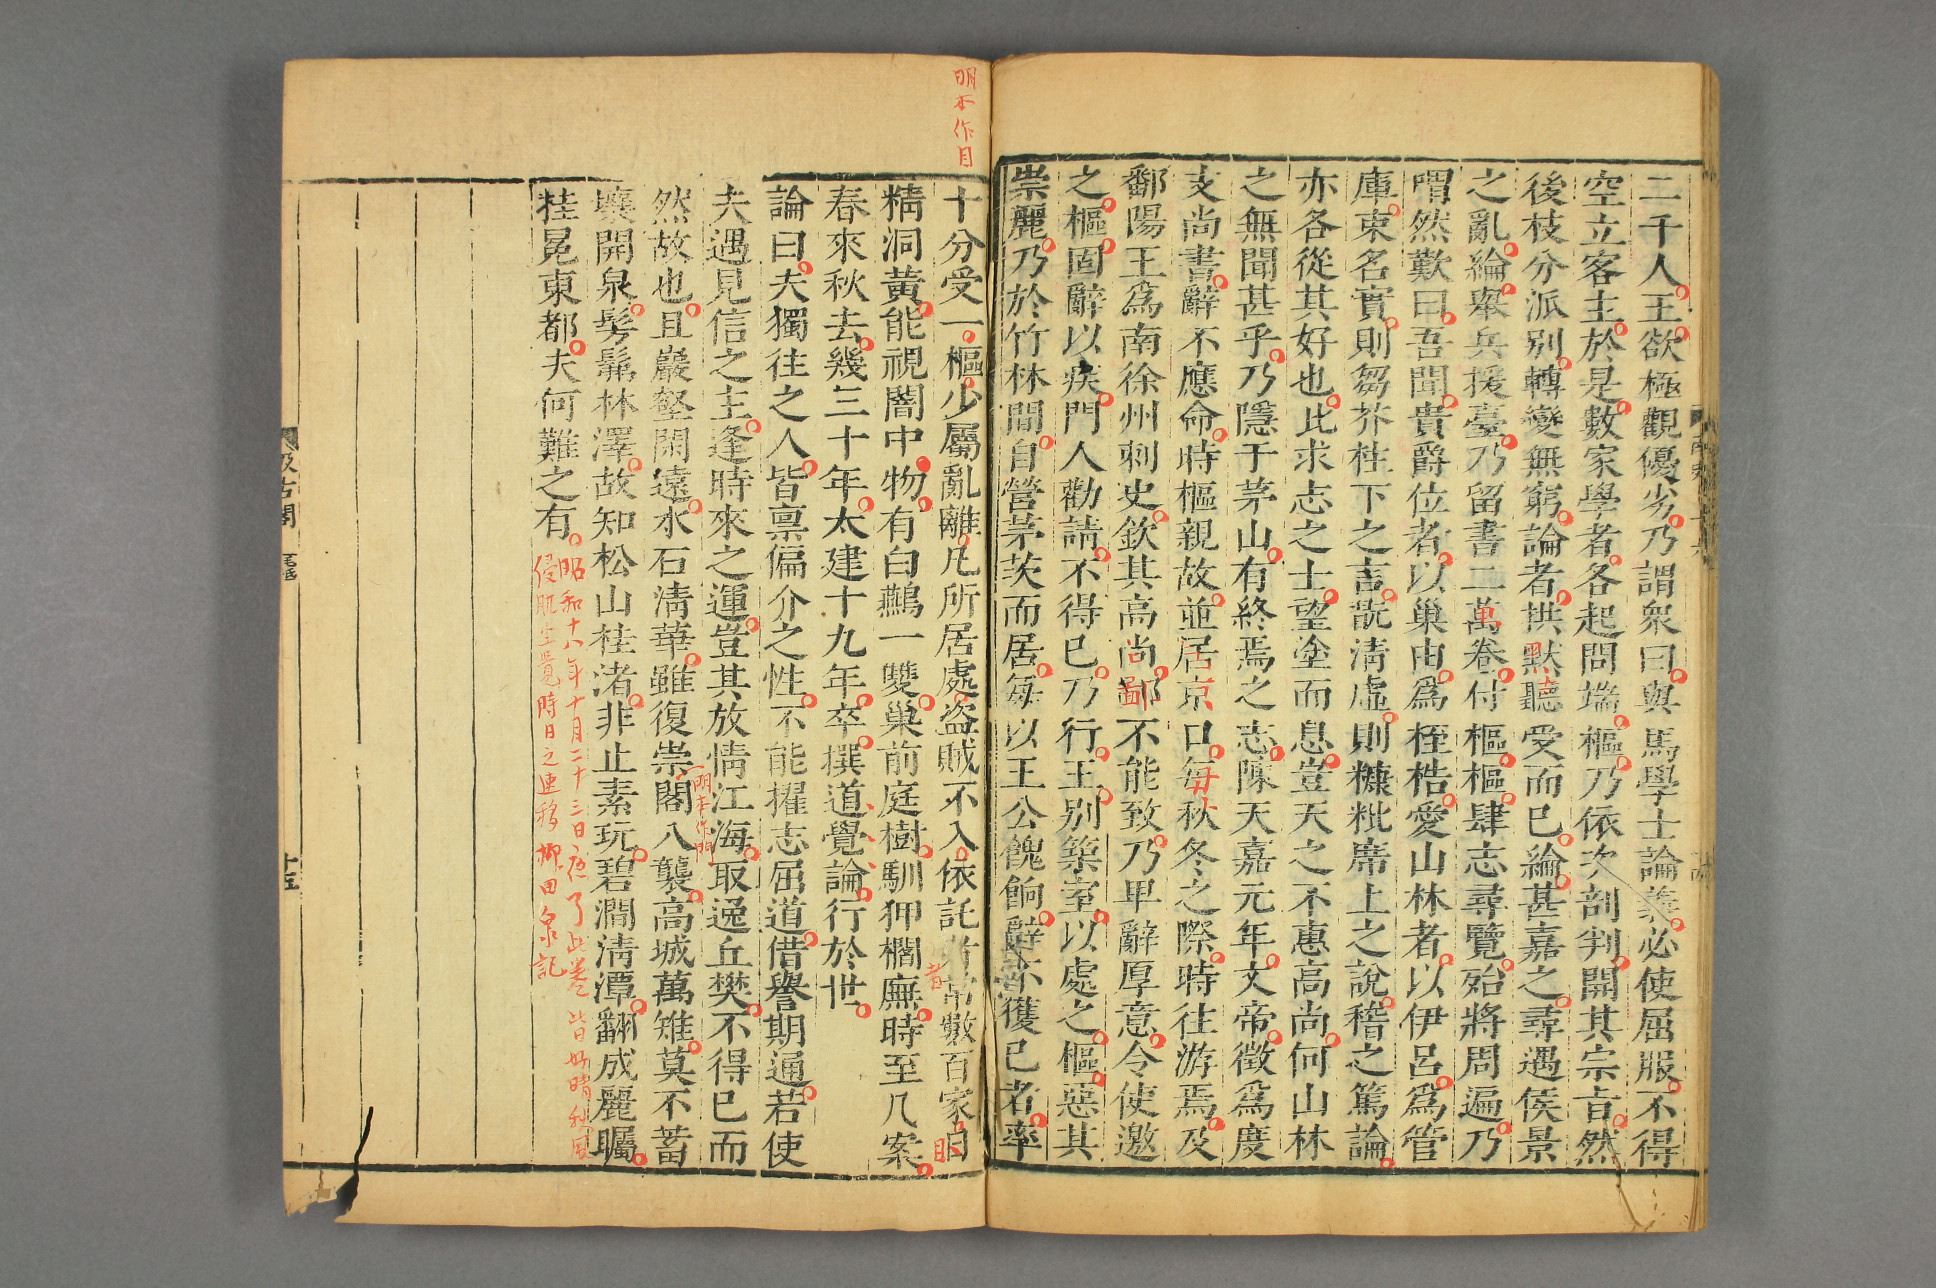 二千人王欲極觀優劣乃謂衆曰與馬學士論義必使屈服不得
空立客主於是數家學者各起問端樞乃依次剖判開其宗旨然
後枝分派別轉變無窮論者拱默聽受而已綸甚嘉之尋遇侯景
之亂綸舉兵援臺乃留書二萬卷付樞樞肆志尋覽殆將周遍乃
喟然歎曰吾聞貴爵位者以巢由爲桎梏愛山林者以伊呂爲管
庫束名實則芻芥柱下之言翫淸虛則糠粃席上之說稽之篤論
亦各從其好也比求志之士望塗而息豈天之不惠高尚何山林
之無聞甚乎乃隱于茅山有終焉之志陳天嘉元年文帝徵爲度
支尚書辭不應命時樞親故並居京口每秋冬之際時往游焉及
鄱陽王爲南徐州刺史欽其高尚鄙不能致乃卑辭厚意令使邀
之樞固辭以疾門人勸請不得已乃行王別築室以處之樞惡其
崇麗乃於竹林間自營茅茨而居每以王公餽餉辭不獲已者率
明本作目
十分受一樞少屬亂離凡所居處盜賊不入依託者常數百家目
眼
者
精洞黃能視闇中物有白鷰一雙巢前庭樹馴狎櫩廡時至几案
春來秋去幾三十年太建十九年卒撰道覺論行於世
論曰夫獨往之人皆禀偏介之性不能擢志屈道借譽期通若使
夫遇見信之主逢時來之運豈其放情江海取逸丘樊不得已而
明本作門
然故也且巖壑閑遠水石淸華雖復崇閣八襲高城萬雉莫不蓄
壤開泉髣髴林澤故知松山桂渚非止素玩碧澗淸潭翻成麗矚
挂冕東都夫何難之有
昭和十八年十月二十三日夜了此卷 皆好晴秋風
侵肌坐覺時日之速移 柳田泉記
汲古閣
十五